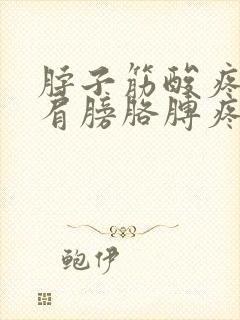 脖子筋酸疼
肩膀胳膊疼
鲍伊